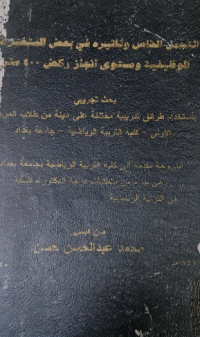 التحمل الخاص وتأثيره في بعض المتغيرات
الوظيفية ومستوى انجاز ركض ٤٠٠ متر
بحث تجريبي
باستخدام طرائق تدريبية مختلفة على عينة من طلاب
الاولى - كلية التربية الرياضية - جامعة بغداد
مقدمة الى كلية التربية الرياضية بجامعة بغداد
وهي جزء من متطلبات درجة الدكتوراه فلسفة
في التربية الرياضية
من قبل
محمد عبدالحسن حسن